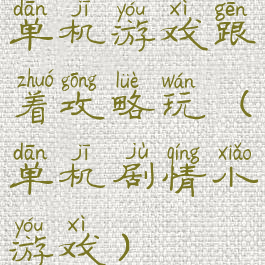 dān jī yóu xì gēn
单机游戏跟
zhuó gōng lüè wán
着攻略玩（
dān jī jù qíng xiǎo
单机剧情小
yóu xì
游戏）